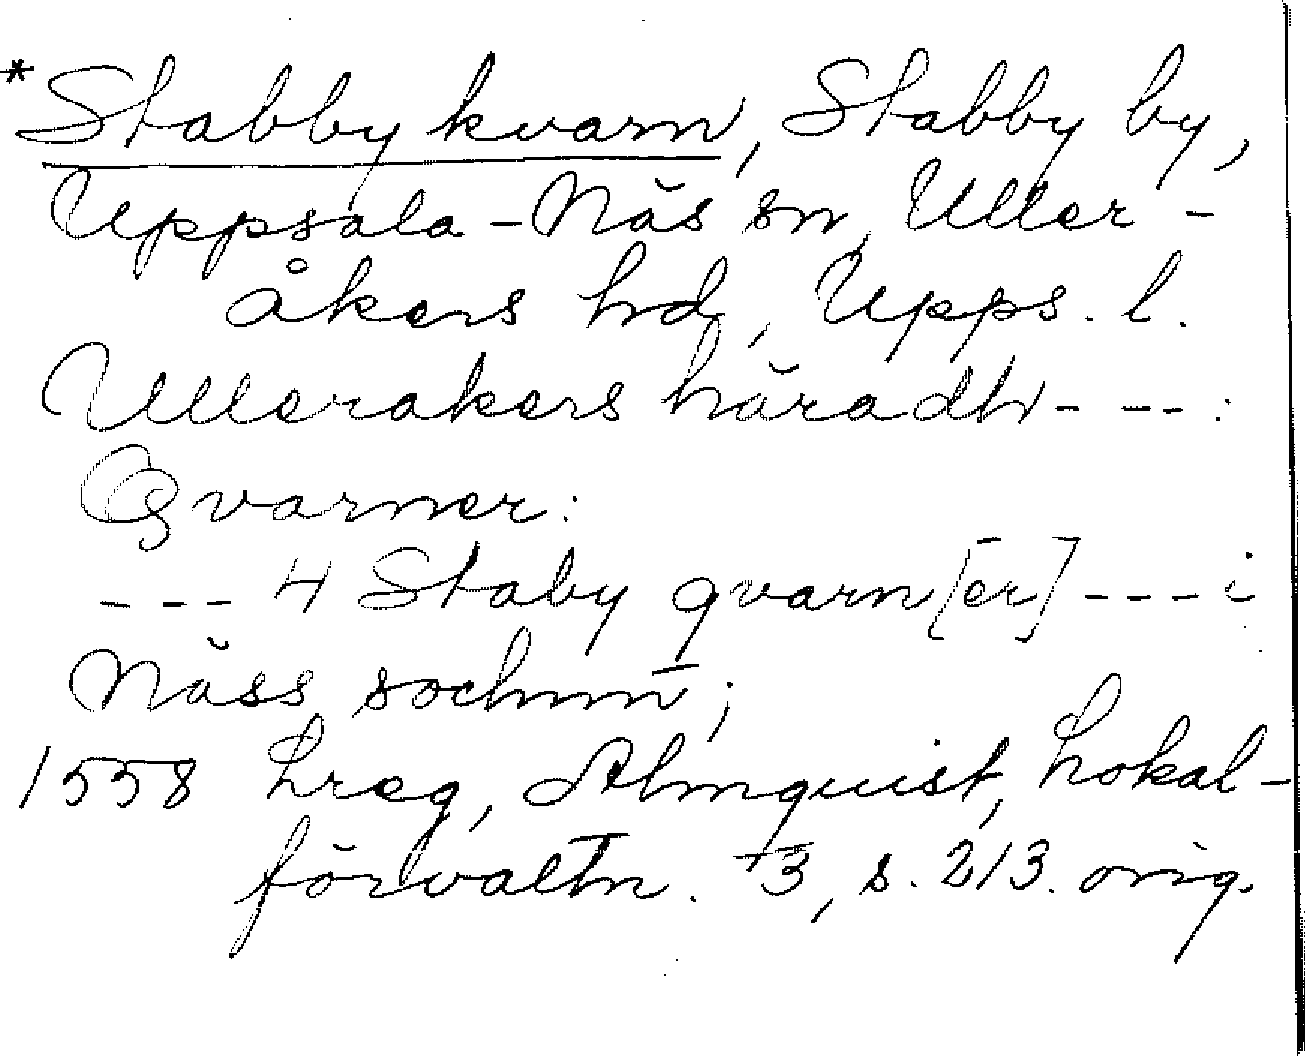 *Stabby kvarn, Stabby by,
Uppsala-Näs sn, Uller-
åkers hd, Upps. l.
Ullerakers häradh - - - :
Qvarner:
- - - 4 Staby qvarn[er] - - - i
Näss sochnn̄;
1558 Lreg, Almquist, Lokal-
förvaltn. 3, s. 213. orig.